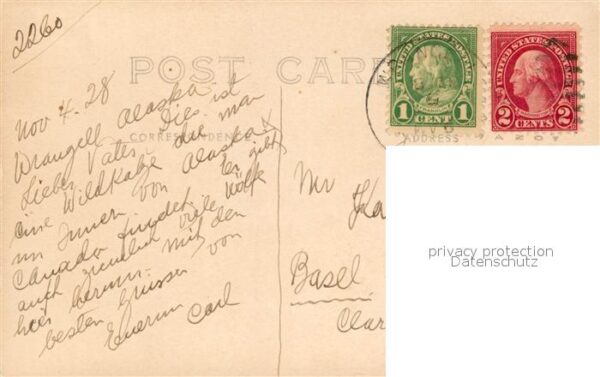 2260
POST CARD
CORRESPONDENCE
ADDRESS
UNITED STATES POSTAGE
1 CENT 1
UNITED STATES POSTAGE
2 CENTS 2
Nov 4. 28
Wrangell Alaska
Lieber Vater. Dies ist
eine Wildkatze die man
im Innern von Alaska &
Canada findet. Es gibt
auch ziemlich viele Wölfe
hier herum. Mit den
besten Grüssen von
Euerm Carl
Mr
Basel
privacy protection
Datenschutz